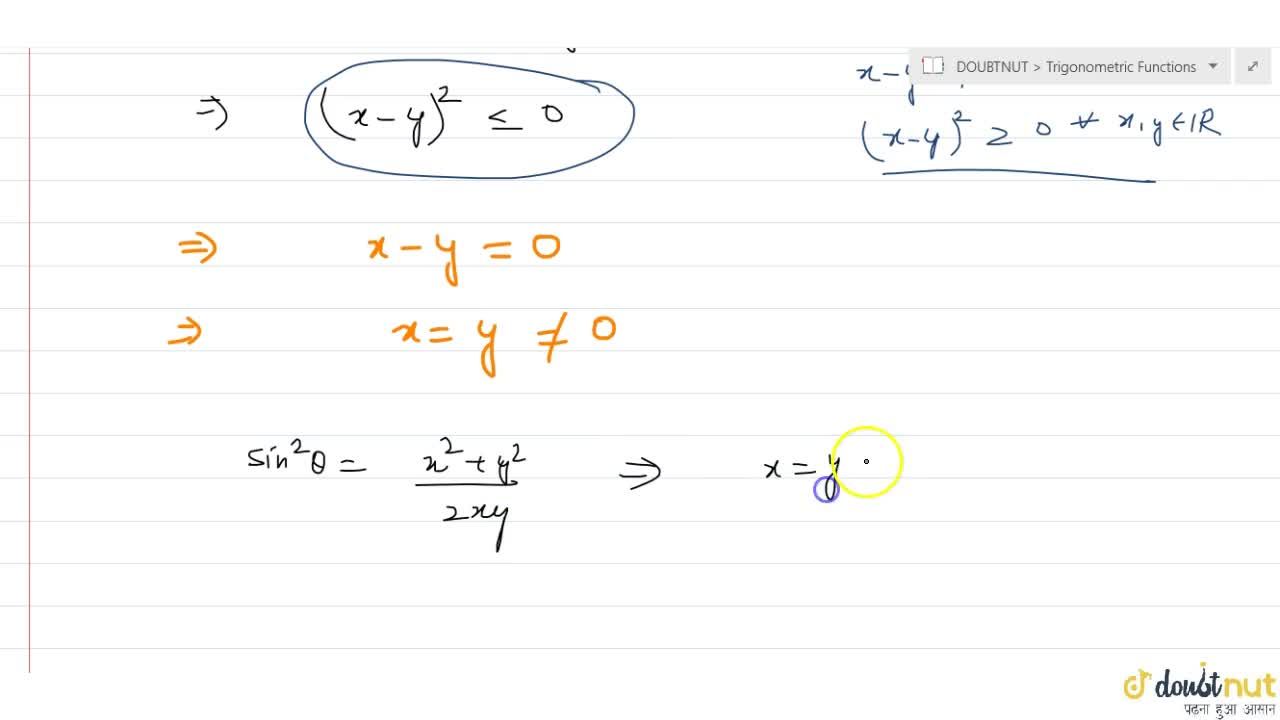 DOUBTNUT > Trigonometric Functions
⇒ (x-y)² ≤ 0
x-y
(x-y)² ≥ 0 ∀ x, y ∈ ℝ
⇒ x-y = 0
⇒ x = y ≠ 0
sin²θ = (x²+y²)/(2xy) ⇒ x = y
doubtnut
पढ़ना हुआ आसान